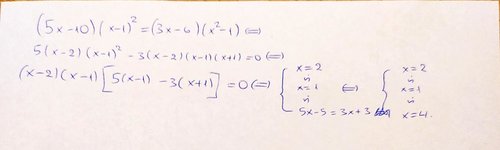 (5x-10)(x-1)² = (3x-6)(x²-1) ⇔
5(x-2)(x-1)² - 3(x-2)(x-1)(x+1) = 0 ⇔
(x-2)(x-1)[5(x-1) - 3(x+1)] = 0 ⇔ { x=2 ή x=1 ή 5x-5=3x+3 ⇔ { x=2 ή x=1 ή x=4.